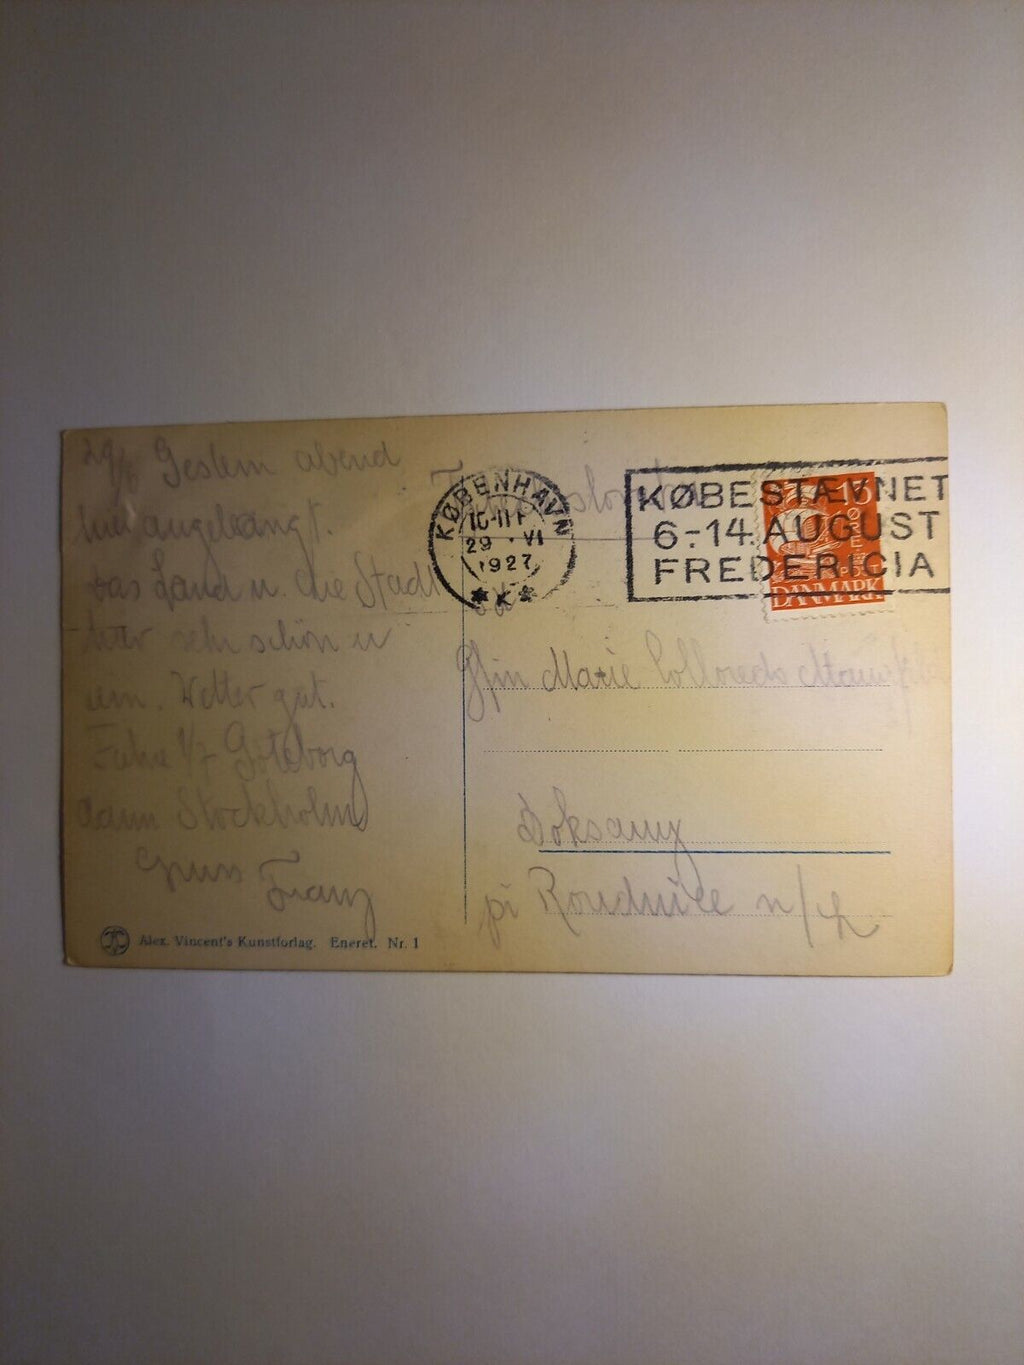 29/6 Gestern abend
hier angelangt.
Das Land u. die Stadt
hier sehr schön u
rein. Wetter gut.
Fahre 1/7 Göteborg
dann Stockholm
Gruss Franz
Alex. Vincent's Kunstforlag. Eneret. Nr. 1
KØBENHAVN
29 · VI
1927
KØBESTÆVNET
6-14. AUGUST
FREDERICIA
15
DANMARK
Gfin Marie Colloredo Mannsfeld
Doksany
pi Roudnice n/L